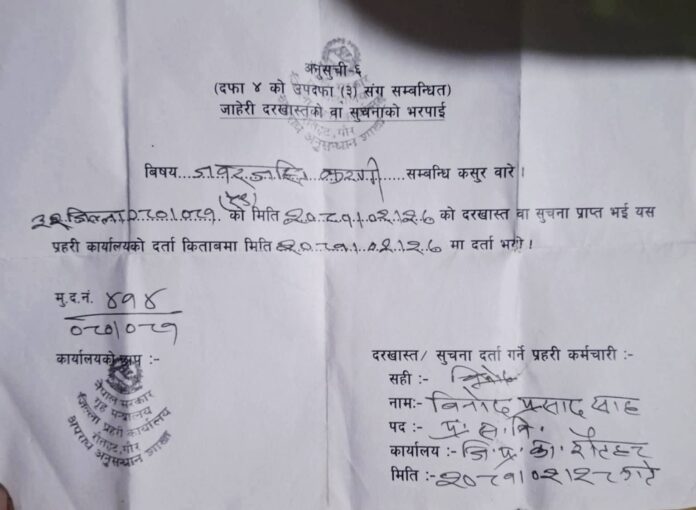 अनुसुची-६
(दफा ४ को उपदफा (३) संग सम्बन्धित)
जाहेरी दरखास्तको वा सुचनाको भरपाई
विषय...जवरजस्ति करणी......सम्बन्धि कसुर वारे।
जिल्ला ०८०।०८१ को मिति २०८१।०२।२६ को दरखास्त वा सुचना प्राप्त भई यस
प्रहरी कार्यालयको दर्ता किताबमा मिति २०८१।०२।२६ मा दर्ता भयो।
मु.द.नं. ४१४
०८०।०८१
कार्यालयको छाप :-
नेपाल सरकार
गृह मन्त्रालय
जिल्ला प्रहरी कार्यालय
रौतहट, गौर
अपराध अनुसन्धान शाखा
दरखास्त/ सुचना दर्ता गर्ने प्रहरी कर्मचारी :-
सही :-
नामः- बिनोद प्रसाद साह
पद :- प्र. स. नि.
कार्यालय :- जि. प्र. का. रौतहट
मिति :- २०८१।०२।२८ गते